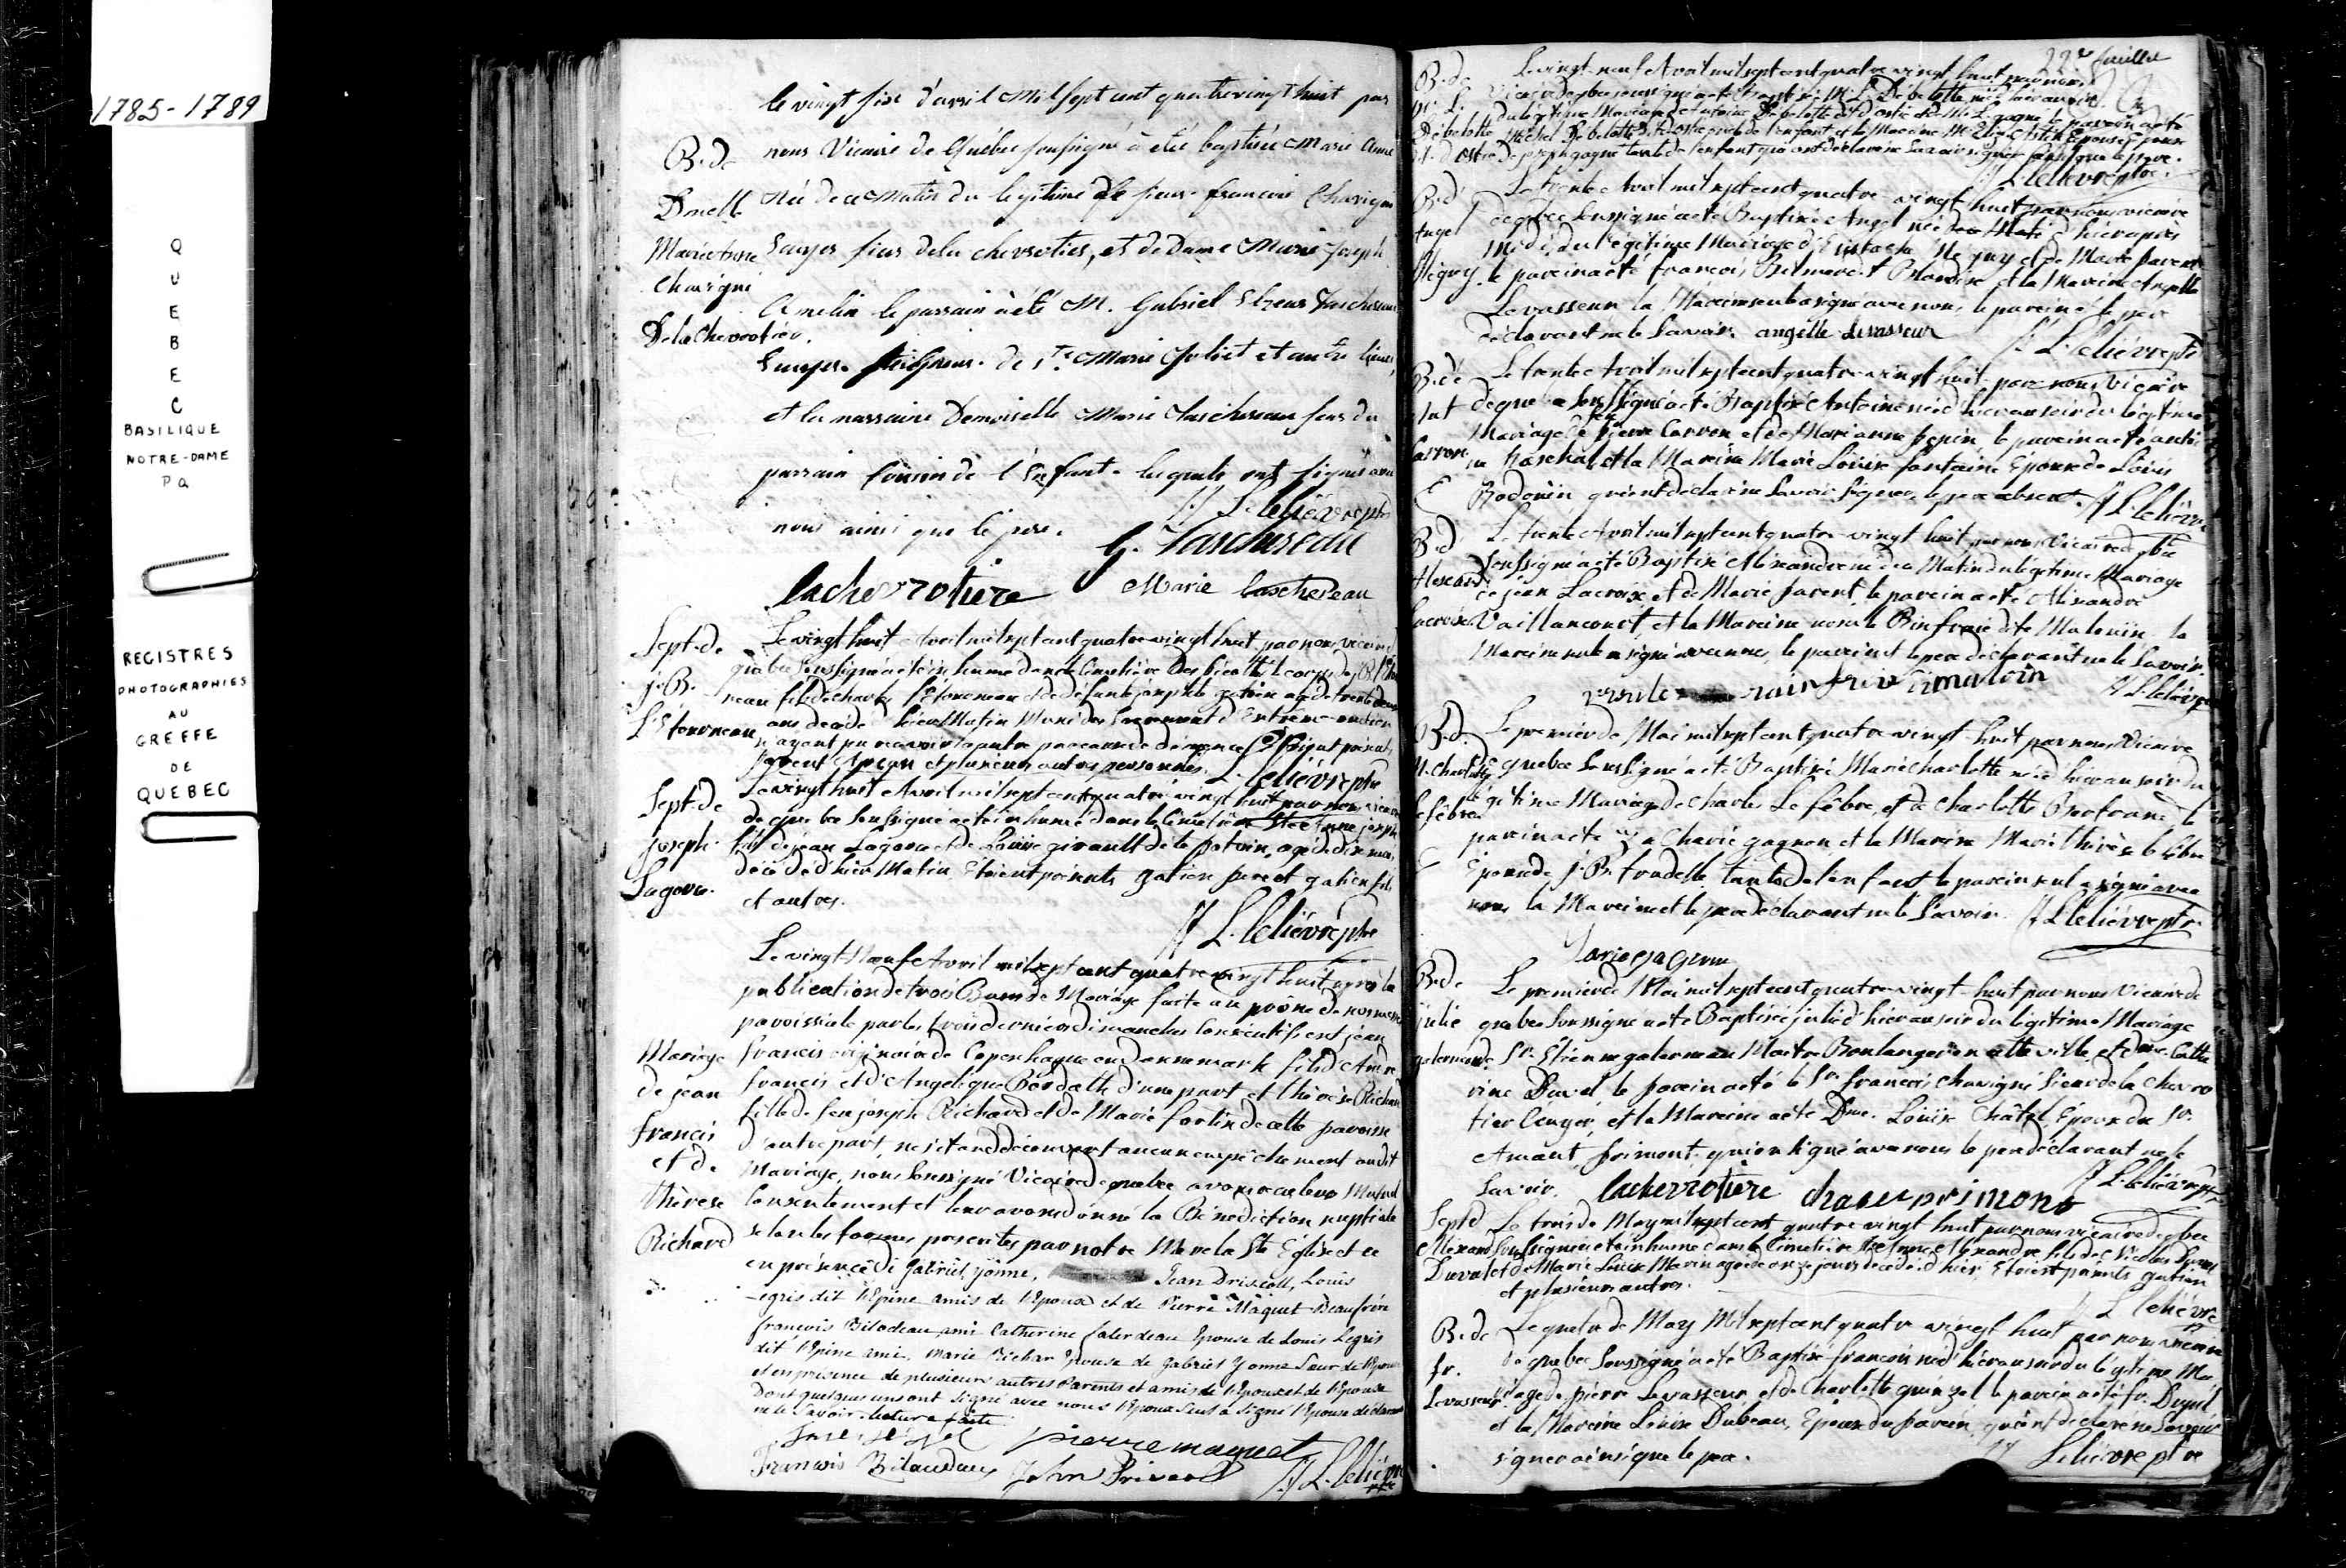 1785-1789
QUEBEC
BASILIQUE
NOTRE-DAME
PQ
REGISTRES
PHOTOGRAPHIES
AU
GREFFE
DE
QUEBEC
le vingt six d'avril Mil sept cent quatrevingt huit par
B. de
nous Vicaire de Québec soussigné à été baptisée Marie Anne
Dmelle
Née de ce matin du legitime de sieur francois Chavigni
Marie Anne
Ecuyer sieur de la chevrotier, et de Dame Marie Joseph
Chavigni
Amelin le parrain à été M. Gabriel Elzear Taschereau
De la Chevrotier.
Ecuyer Seigneur de Ste Marie Joliet et autre lieux,
et la marraine Demoiselle Marie Taschereau seur du
parrain Cousin de l'Enfant lesquels ont signés avec
nous ainsi que le pere.
J. L. lelièvre ptre
G. Taschereau
lachevrotiere
Marie taschereau
Sept. de
J. B.
L'Etourneau
Le vingt huit Avril mil sept cent quatre vingt huit par nous vicaire de
québec soussigné a été inhumé dans le Cimetière des picottés le corps de J. B. l'Etour
neau fils de charles l'Etourneau et de défunte josephe gatien agé de trente deux
ans decédé hier Matin Muni du Sacrement d'Extreme-onction
n'ayant pu recevoir
et plusieurs autres personnes. L. lelièvre ptre
Sept. de
joseph
Lagova
Le vingt huit Avril mil sept cent quatre vingt huit par nous vicaire
de quebec soussigné a été inhumé dans le Cimetière Ste Anne joseph
fils de jean Lagova et de Louise girault de la Potvin, agé de dix mois
décédé d'hier Matin Etoient présents gatien pere et gatien fils
et autres.
J L. lelièvre ptre
Le vingt Neuf Avril mil sept cent quatre vingt huit après la
publication de trois Bans de Mariage faite au prône de nos messes
paroissiale par les trois derniers dimanches Consécutifs ent jean
Mariage
francis originaire de Copenhague en dannemark fils d'André
de jean
francis et d'Angelique Bordath d'une part et thérèse Richard
fille de feu joseph Richard et de Marie fortin de cette paroisse
francis
d'autre part, ne s'étand découvert aucun empêchement audit
et de
Mariage, nous Soussigné Vicaire de quebec avons reçu leur Mutuel
thérèse
Consentement et leur avons donné la Bénédiction nuptiale
Richard
selon les formes prescrites par notre Mere la Ste Eglise et ce
en présence de Gabriel yonne, Jean Driscoll, Louis
Legris dit l'Epine amis de l'Epoux et de Pierre Maquet Beaufrère
françois Bilodeau ami Catherine falerdeau Epouse de Louis Legris
dit l'Epine amie, Marie Richar Epouse de Gabriel Yonne Seur de l'Epouse
et en présence de plusieurs autres Parents et amis de l'Epoux et de l'Epouse
Dont quelques uns ont signé avec nous l'Epoux seul a signé l'Epouse déclarant
ne le Savoir. lecture faite
pierre maquet
Francois Bilaudaux John J. L. lelièvre ptre
22e feuillet
B. de
M. L.
Debelotte
dt. d'ostie
Le vingt-neuf Avril mil sept cent quatre vingt huit par nous
Vicaire de quebec soussigné a été Baptisée M. L. Debelotte née hier au soir
du légitime Mariage d'Antoine Debelotte dit d'ostie et de M. L. gagné le parrain a été
Michel Debelotte
de joseph gagné tante de l'enfant qui ont declaré ne Savoir signer ainsi que le pere.
J L. lelièvre ptre.
B. d'
Angel
Méguy
Le trente Avril mil sept cent quatre vingt huit par nous vicaire
de quebec Soussigné a été Baptisé Angel né hier après
Midi, du légitime Mariage d'Eustache Méguy et de Marie parent
le parein a été francois et la Mareine Angelle
Levasseur la Mareine seule a signé avec nous le parein et le pere
déclarant ne le Savoir. angelle Levasseur
J. L. lelièvre ptre
B. d'
Ant
Carron
Le trente Avril mil sept cent quatre-vingt huit par nous vicaire
de quebec Soussigné a été Baptisé Antoine né d'hier au soir du légitime
Mariage de feu Pierre Carron et de Marianne pepin le parein a été antoi
ne paschal et la Mareine Marie Louise fontaine Epouse de Louis
Bodouin qui ont déclaré ne Savoir Signer, le pere absent. J L. lelièvre
B. d'
Alexand.
Lacroix
Le trente Avril mil sept cent quatre-vingt huit par nous Vicaire de qbec
Soussigné a été Baptisé Alexandre né de ce Matin du légitime Mariage
de jean Lacroix et de Marie parent le parein a été Alexandre
Vaillancourt, et la Mareine dite Malouin la
Mareine seule a signé avec nous, le parein et le pere déclarant ne le Savoir.
J L. lelièvre ptre
B. d.
M. Charlotte
Lefêbre
Le premier de Mai mil sept cent quatre vingt-huit par nous Vicaire
de quebec Soussigné a été Baptisée Marie charlotte née d'hier au soir du
légitime Mariage de Charles Le fêbre, et de Charlotte le
parein a été gagnon, et la Mareine Marie thérèse le fêbre
Epouse de J. B. trudelle tante de l'enfant le parein seul a signé avec
nous la Mareine et le pere déclarant ne le Savoir. J L. lelièvre ptre.
B. de
julie
galerneau
Le premier de Mai mil sept cent quatre-vingt-huit par nous Vicaire de
quebec Soussigné a été Baptisée julie d'hier au soir du légitime Mariage
Sr. Etienne galerneau Maitre Boulanger en cette ville, et dme. Cathe
rine Duval, le parein a été le Sr. francois chavigné Sieur de la chevro
tier Ecuyer, et la Mareine a été Dme. Louise Châtel Epouse du Sr.
Amant primont qui ont signé avec nous le pere déclarant ne le
Savoir. lachevrotiere primont
J L. lelièvre ptre
Sept. d'
Alexand.
Duval
Le trois de May mil sept cent quatre vingt huit par nous vicaire de quebec
Soussigné a été inhumé dans le Cimetière Ste Anne Alexandre fils de Nicolas
et de Marie Louise Marin agé de onze jours decédé d'hier, Etoient présents gatien
et plusieurs autres.
J L. lelièvre
B. de
fr.
Levasseur
Le quatre de May Mil sept cent quatre vingt huit par nous vicaire
de quebec Soussigné a été Baptisé francois né d'hier au soir du légitime Ma
riage de pierre Levasseur, et de Charlotte le parein a été fr. Duquet
et la Mareine Louise Dubeau, Epouse du parein, qui ont déclaré ne Savoir
signer ainsi que le pere.
J J Lelièvre ptre